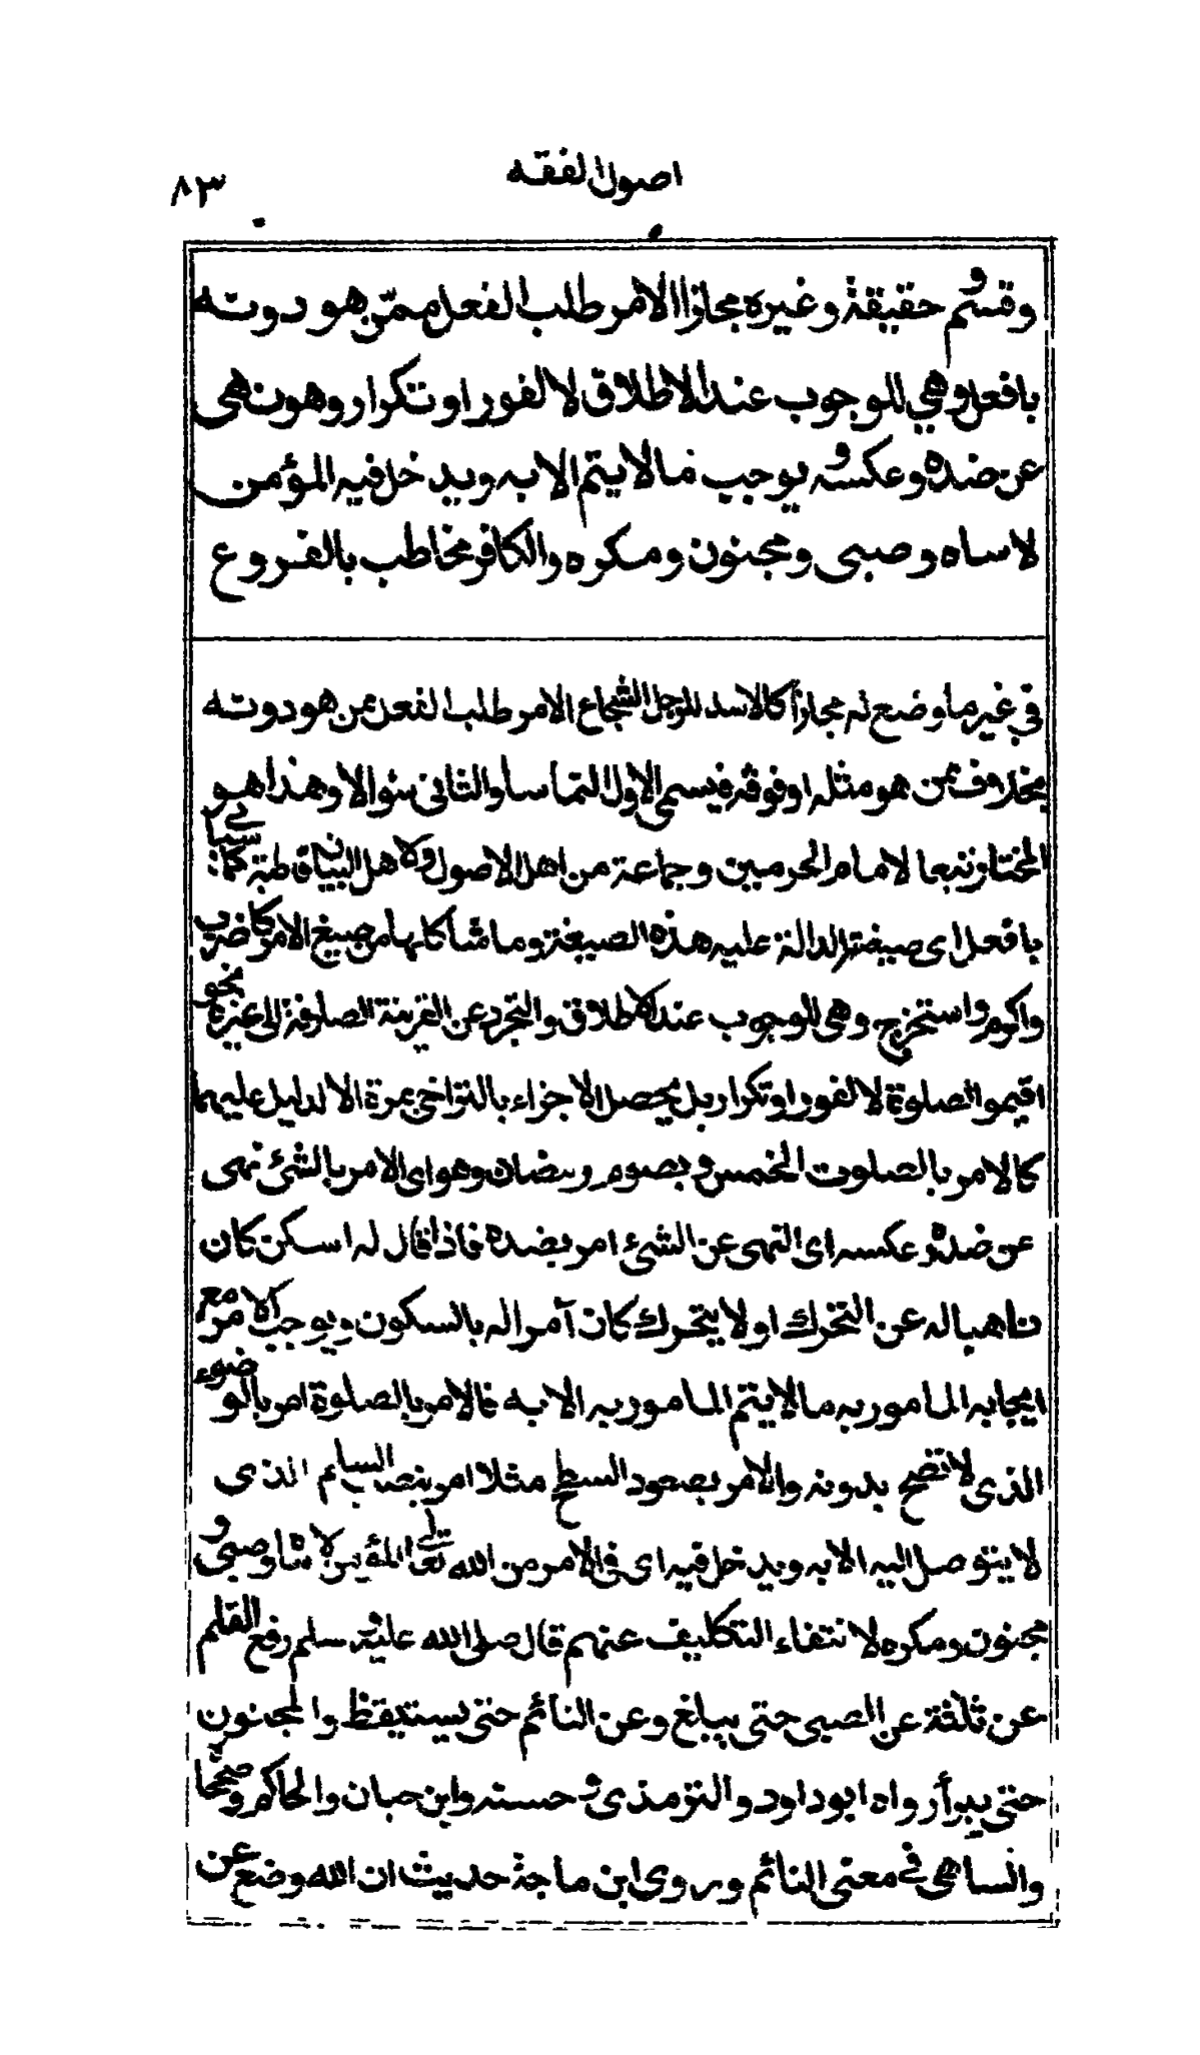 اصول الفقه
٨٣
وقسم حقيقة وغيره مجازا الامر طلب الفعل ممن هو دونه
بافعل وهي للوجوب عند الاطلاق لا لفور او تكرار وهو نهى
عن ضده وعكسه ويوجب ما لا يتم الا به ويدخل فيه المؤمن
لا ساه وصبى ومجنون ومكره والكافر مخاطب بالفروع
في غير ما وضع له مجازا كالاسد للرجل الشجاع الامر طلب الفعل ممن هو دونه
بخلاف ممن هو مثله او فوقه فيسمى الاول التماسا والثانى سؤالا وهذا هو
المختار تبعا لامام الحرمين وجماعة من اهل الاصول ولاهل البيان قاطبة كما سيأتي
بافعل اى صيغته الدالة عليه هذه الصيغة وما شاكلها من صيغ الامر كاضرب
واكرم واستخرج وهى للوجوب عند الاطلاق والتجرد عن القرينة الصارفة الى غيره نحو
اقيموا الصلوة لا لفور او تكرار بل يحصل الاجزاء بالتراخى بمرة الا لدليل عليهما
كالامر بالصلوت الخمس وبصوم رمضان وهو اى الامر بالشئ نهى
عن ضده وعكسه اى النهى عن الشئ امر بضده فاذا قال له اسكن كان
ناهيا له عن التحرك او لا يتحرك كان آمرا له بالسكون ويوجب الامر مع
ايجابه المامور به ما لا يتم المامور به الا به فالامر بالصلوة امر بالوضوء
الذى لا تصح بدونه والامر بصعود السطح مثلا امر بنصب السلم الذى
لا يتوصل اليه الا به ويدخل فيه اى فى الامر من الله تعالى المؤمن لا ساه وصبى و
مجنون ومكره لانتفاء التكليف عنهم قال صلى الله عليه وسلم رفع القلم
عن ثلثة عن الصبى حتى يبلغ وعن النائم حتى يستيقظ والمجنون
حتى يبرأ رواه ابو داود والترمذى وحسنه وابن حبان والحاكم وصححا
والساهى في معنى النائم وروى ابن ماجة حديث ان الله وضع عن